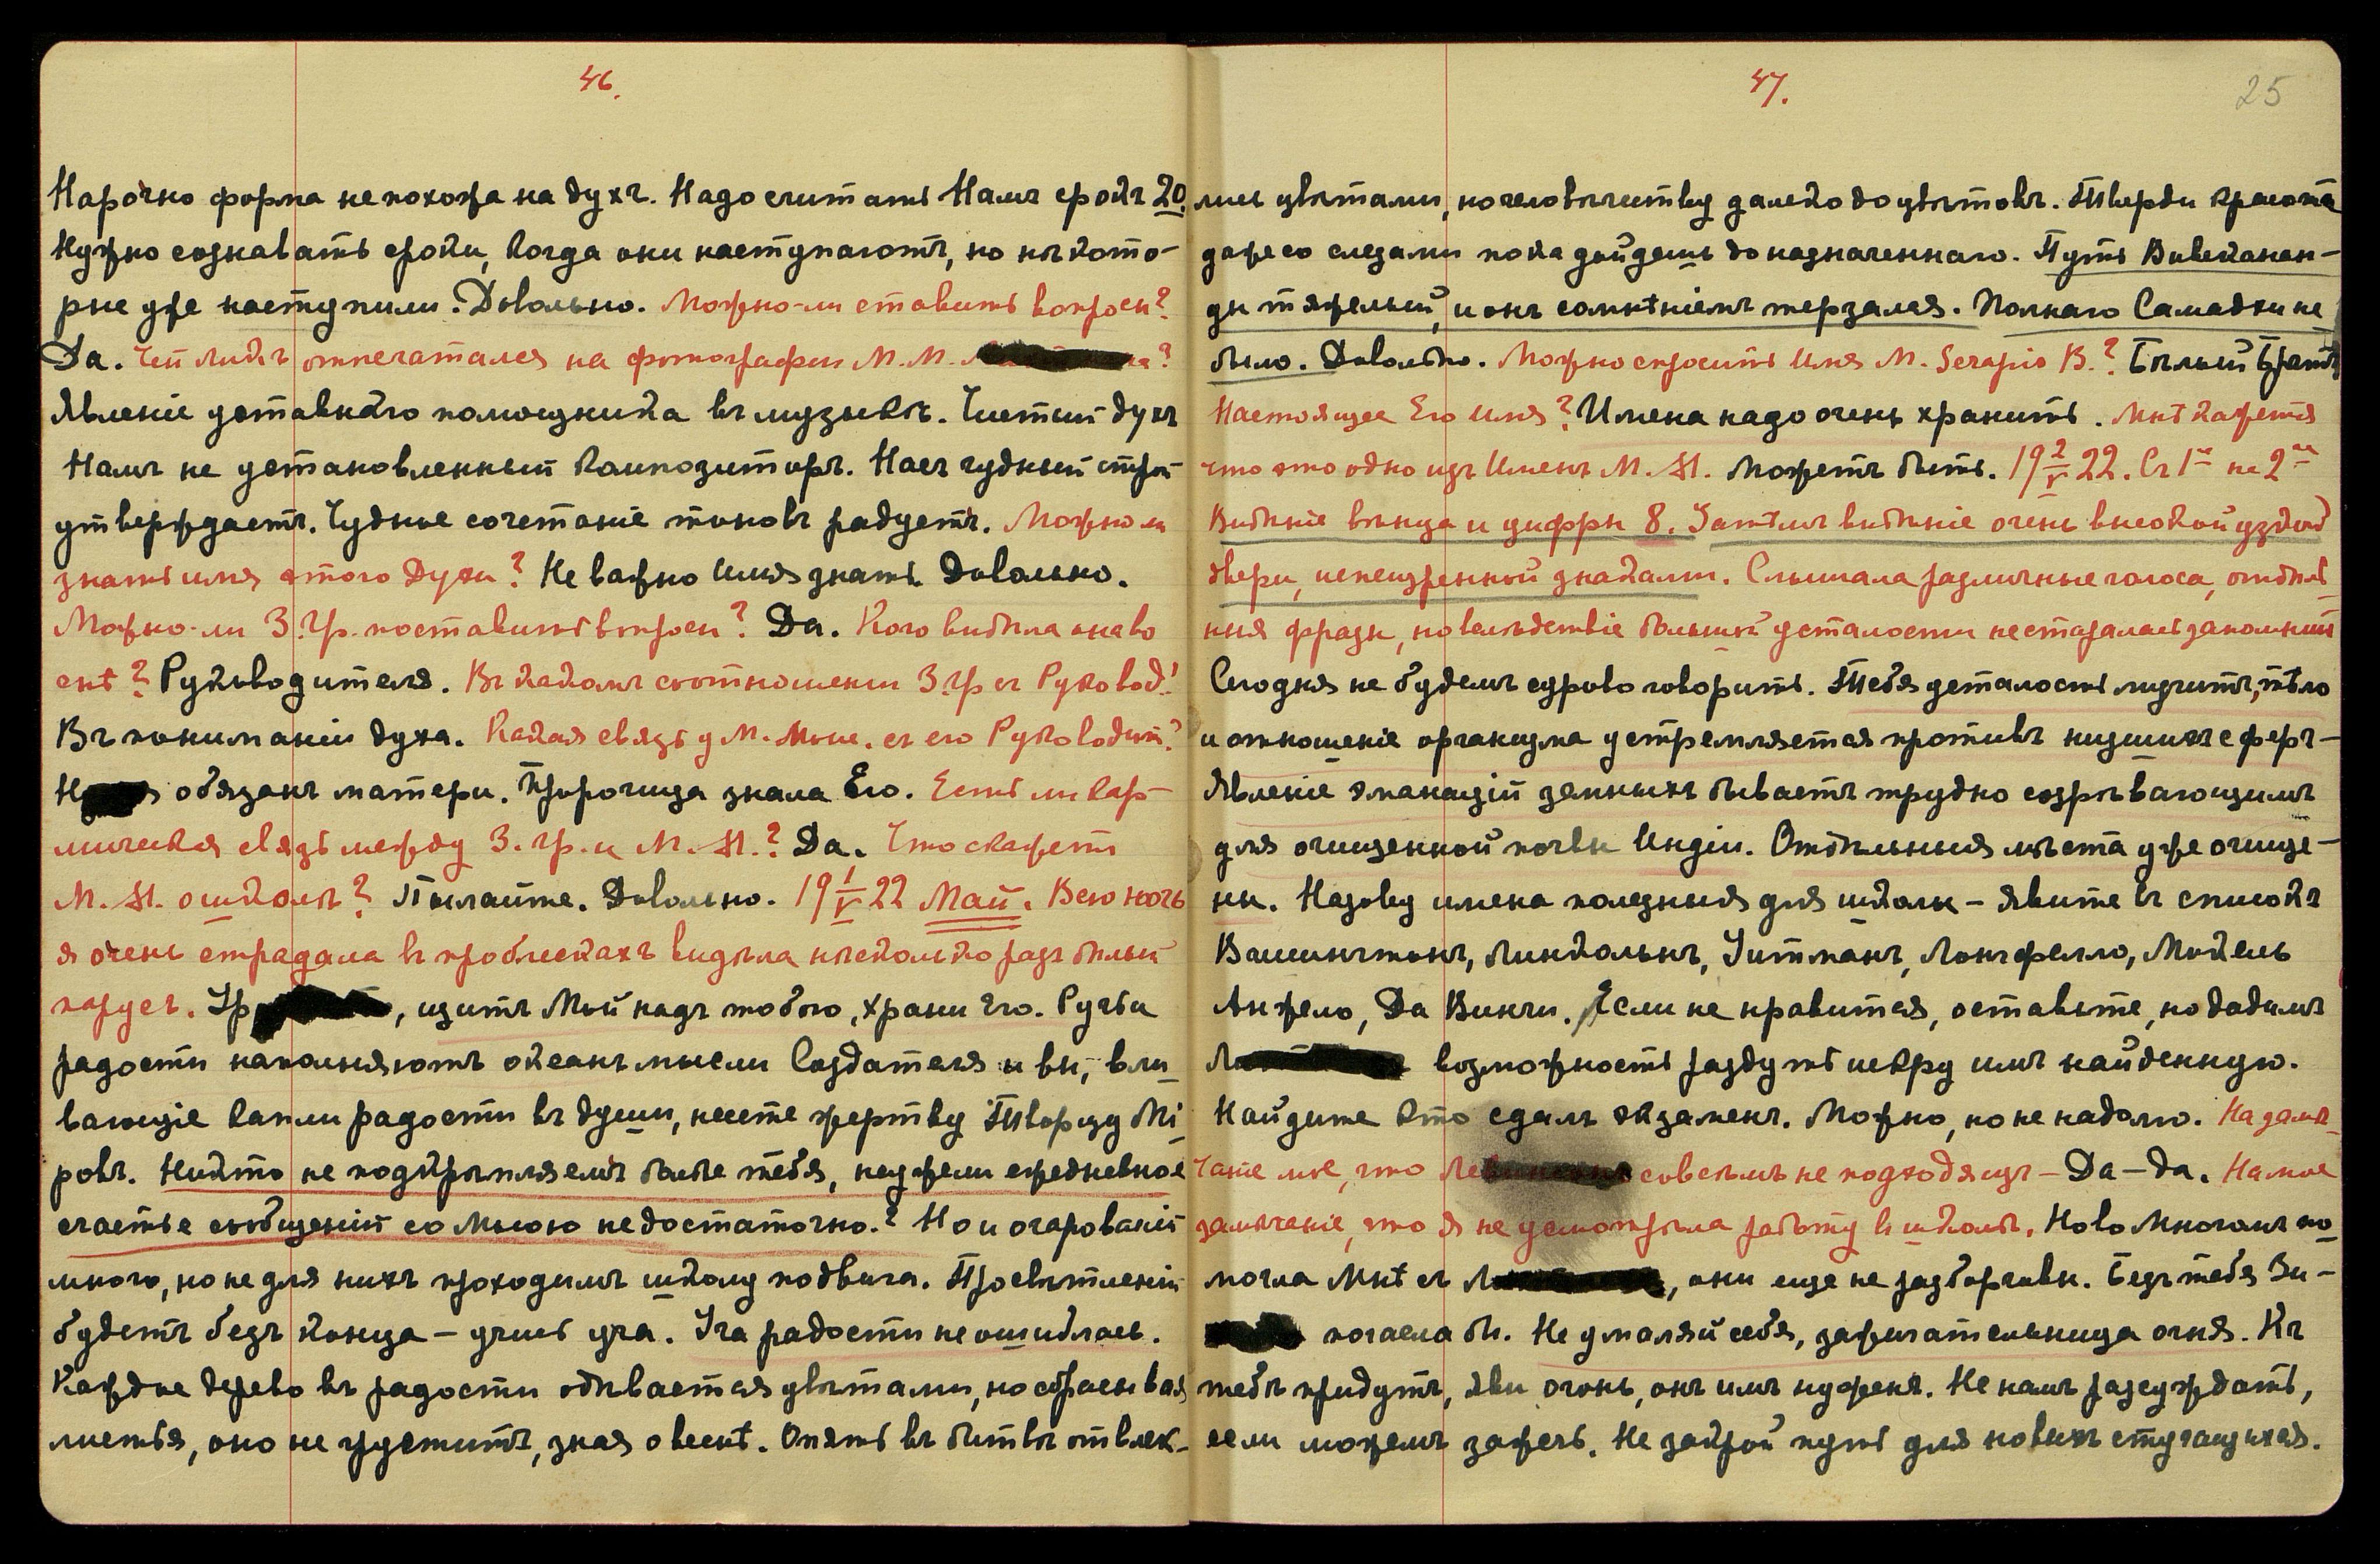 46.
Нарочно форма не похожа на духъ. Надо считать Намъ срокъ 20.
Нужно сознавать сроки, когда они наступаютъ, но нѣкото-
рые уже наступили. Довольно. Можно-ли ставить вопросы?
Да. Чей ликъ отпечатался на фотографіи М. М.
Явленіе уставнаго помощника въ музыкѣ. Чистый духъ
Намъ не установленный композиторъ. Насъ чудный строй
утверждаетъ. Чудное сочетаніе тоновъ радуетъ. Можно ли
знать имя этого Духа? Не важно Имя знать. Довольно.
Можно-ли З. Гр. поставить вопросы? Да. Кого видѣла она во
снѣ? Руководителя. Въ какомъ соотношеніи З. Гр съ Руковод.?
Въ пониманіи духа. Какая связь у М. съ его Руководит.?
обязанъ матери. Пророчица знала Его. Есть ли кар-
мическая связь между З. Гр. и М. М.? Да. Что скажетъ
М. М. о школѣ? Пылайте. Довольно. 19 1/V 22 Май. Всю ночь
я очень страдала въ проблескахъ видѣла нѣсколько разъ бѣлый
парусъ. Ур, щитъ Мой надъ тобою, храни Его. Ручьи
радости наполняютъ океанъ мысли Создателя и вы, вли-
вающіе капли радости въ души, несете жертву Творцу Мі-
ровъ. Никто не подкрѣпляемъ болѣе тебя, неужели ежедневное
счастье сообщеній со Мною недостаточно? Но и очарованій
много, но не для нихъ проходимъ школу подвига. Просвѣтленій
будетъ безъ конца – учись уча. Уча радости не ошиблась.
Каждое дерево въ радости одѣвается цвѣтами, но сбрасывая
листья, оно не груститъ, зная о веснѣ. Опять въ битвѣ отвлек-
47.
25
мись цвѣтами, но человѣчеству далеко до цвѣтовъ. Тверди красота
даже со слезами пока дойдешь до назначеннаго. Путь Вивеканан-
ды тяжелый, и онъ сомнѣніемъ терзался. Полнаго Самадхи не
было. Довольно. Можно спросить Имя М. Serapis B.? Бѣлый Братъ
Настоящее Его Имя? Имена надо очень хранить. Мнѣ кажется
что это одно изъ Именъ М. М. Можетъ быть. 19 2/V 22. Съ 1го на 2ое
Видѣніе вѣнца и цифры 8. Затѣмъ видѣніе очень высокой узкой
двери, испещренной знаками. Слышала различные голоса, отдѣль-
ныя фразы, но вслѣдствіе большой усталости не старалась запомнить
Сегодня не будемъ сурово говорить. Тебя усталость мучитъ, тѣло
и отношеніе организма устремляется противъ низшихъ сферъ –
Явленіе эманацій земныхъ бываетъ трудно созрѣвающимъ
для очищенной почвы Индіи. Отдѣльныя мѣста уже очище-
ны. Назову имена полезныя для школы – явите въ списокъ
Вашингтонъ, Линкольнъ, Уитманъ, Лонгфелло, Микель
Анжело, Да Винчи. Если не нравится, оставьте, но дадимъ
возможность раздуть искру имъ найденную.
Найдите кто сдалъ экзаменъ. Можно, но не надолго. На замѣ-
чаніе мое, что совсѣмъ не подходящъ – Да – да. На мое
замѣчаніе, что я не усмотрѣла работу въ школѣ. Ново Многомъ по-
могла Мнѣ съ, они еще не разборчивы. Безъ тебя Зи-
погасла бы. Не умаляй себя, зажигательница огня. Къ
тебѣ придутъ, яви огонь, онъ имъ нуженъ. Не намъ разсуждать,
если можемъ зажечь. Не закрой путь для новыхъ стучащихся.